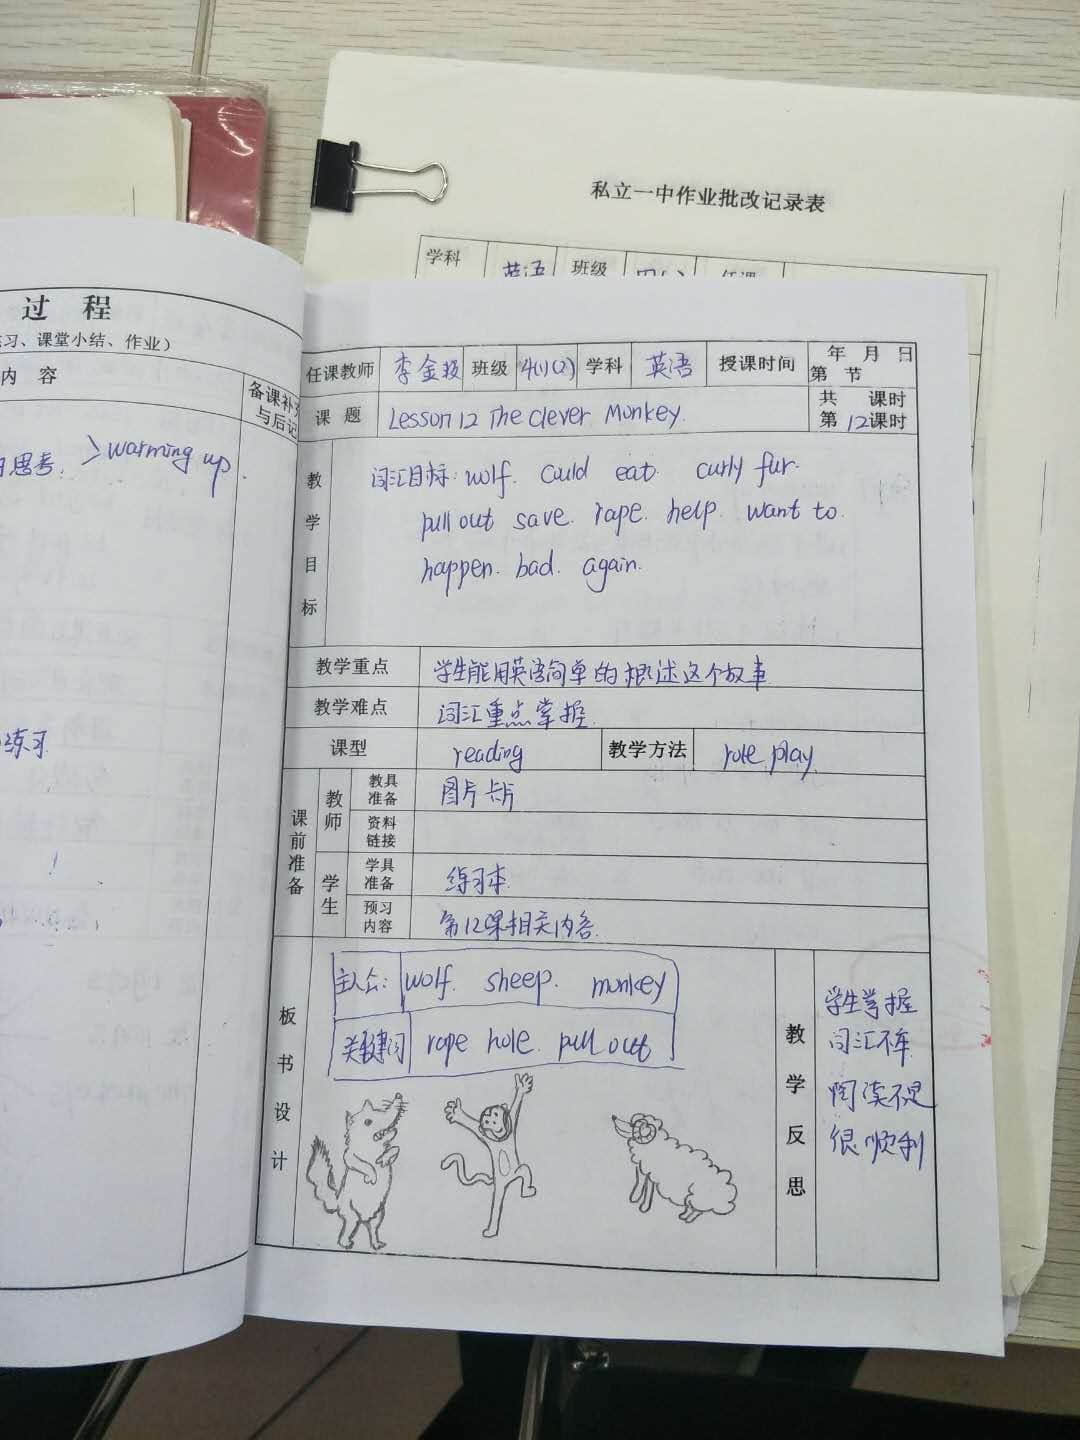 私立一中作业批改记录表
学科 英语 班级
过 程
练习、课堂小结、作业）
内 容
备课补充
与后记
思考. > warming up.
练习
任课教师 李金 班级 4(1)(2) 学科 英语 授课时间 年 月 日
第 节
课 题 Lesson 12 The Clever Monkey. 共 课时
第 12 课时
教学目标
词汇目标: wolf. could eat. curly fur.
pull out save. rape. help. want to.
happen. bad. again.
教学重点 学生能用英语简单的概述这个故事
教学难点 词汇重点掌握.
课型 reading 教学方法 role play.
课前准备
教师
教具准备 图片 卡片
资料链接
学生
学具准备 练习本
预习内容 第12课相关内容.
板书设计
主人公: wolf. sheep. monkey
关键词 rope hole. pull out
教学反思
学生掌握
词汇不牢.
阅读不是
很顺利